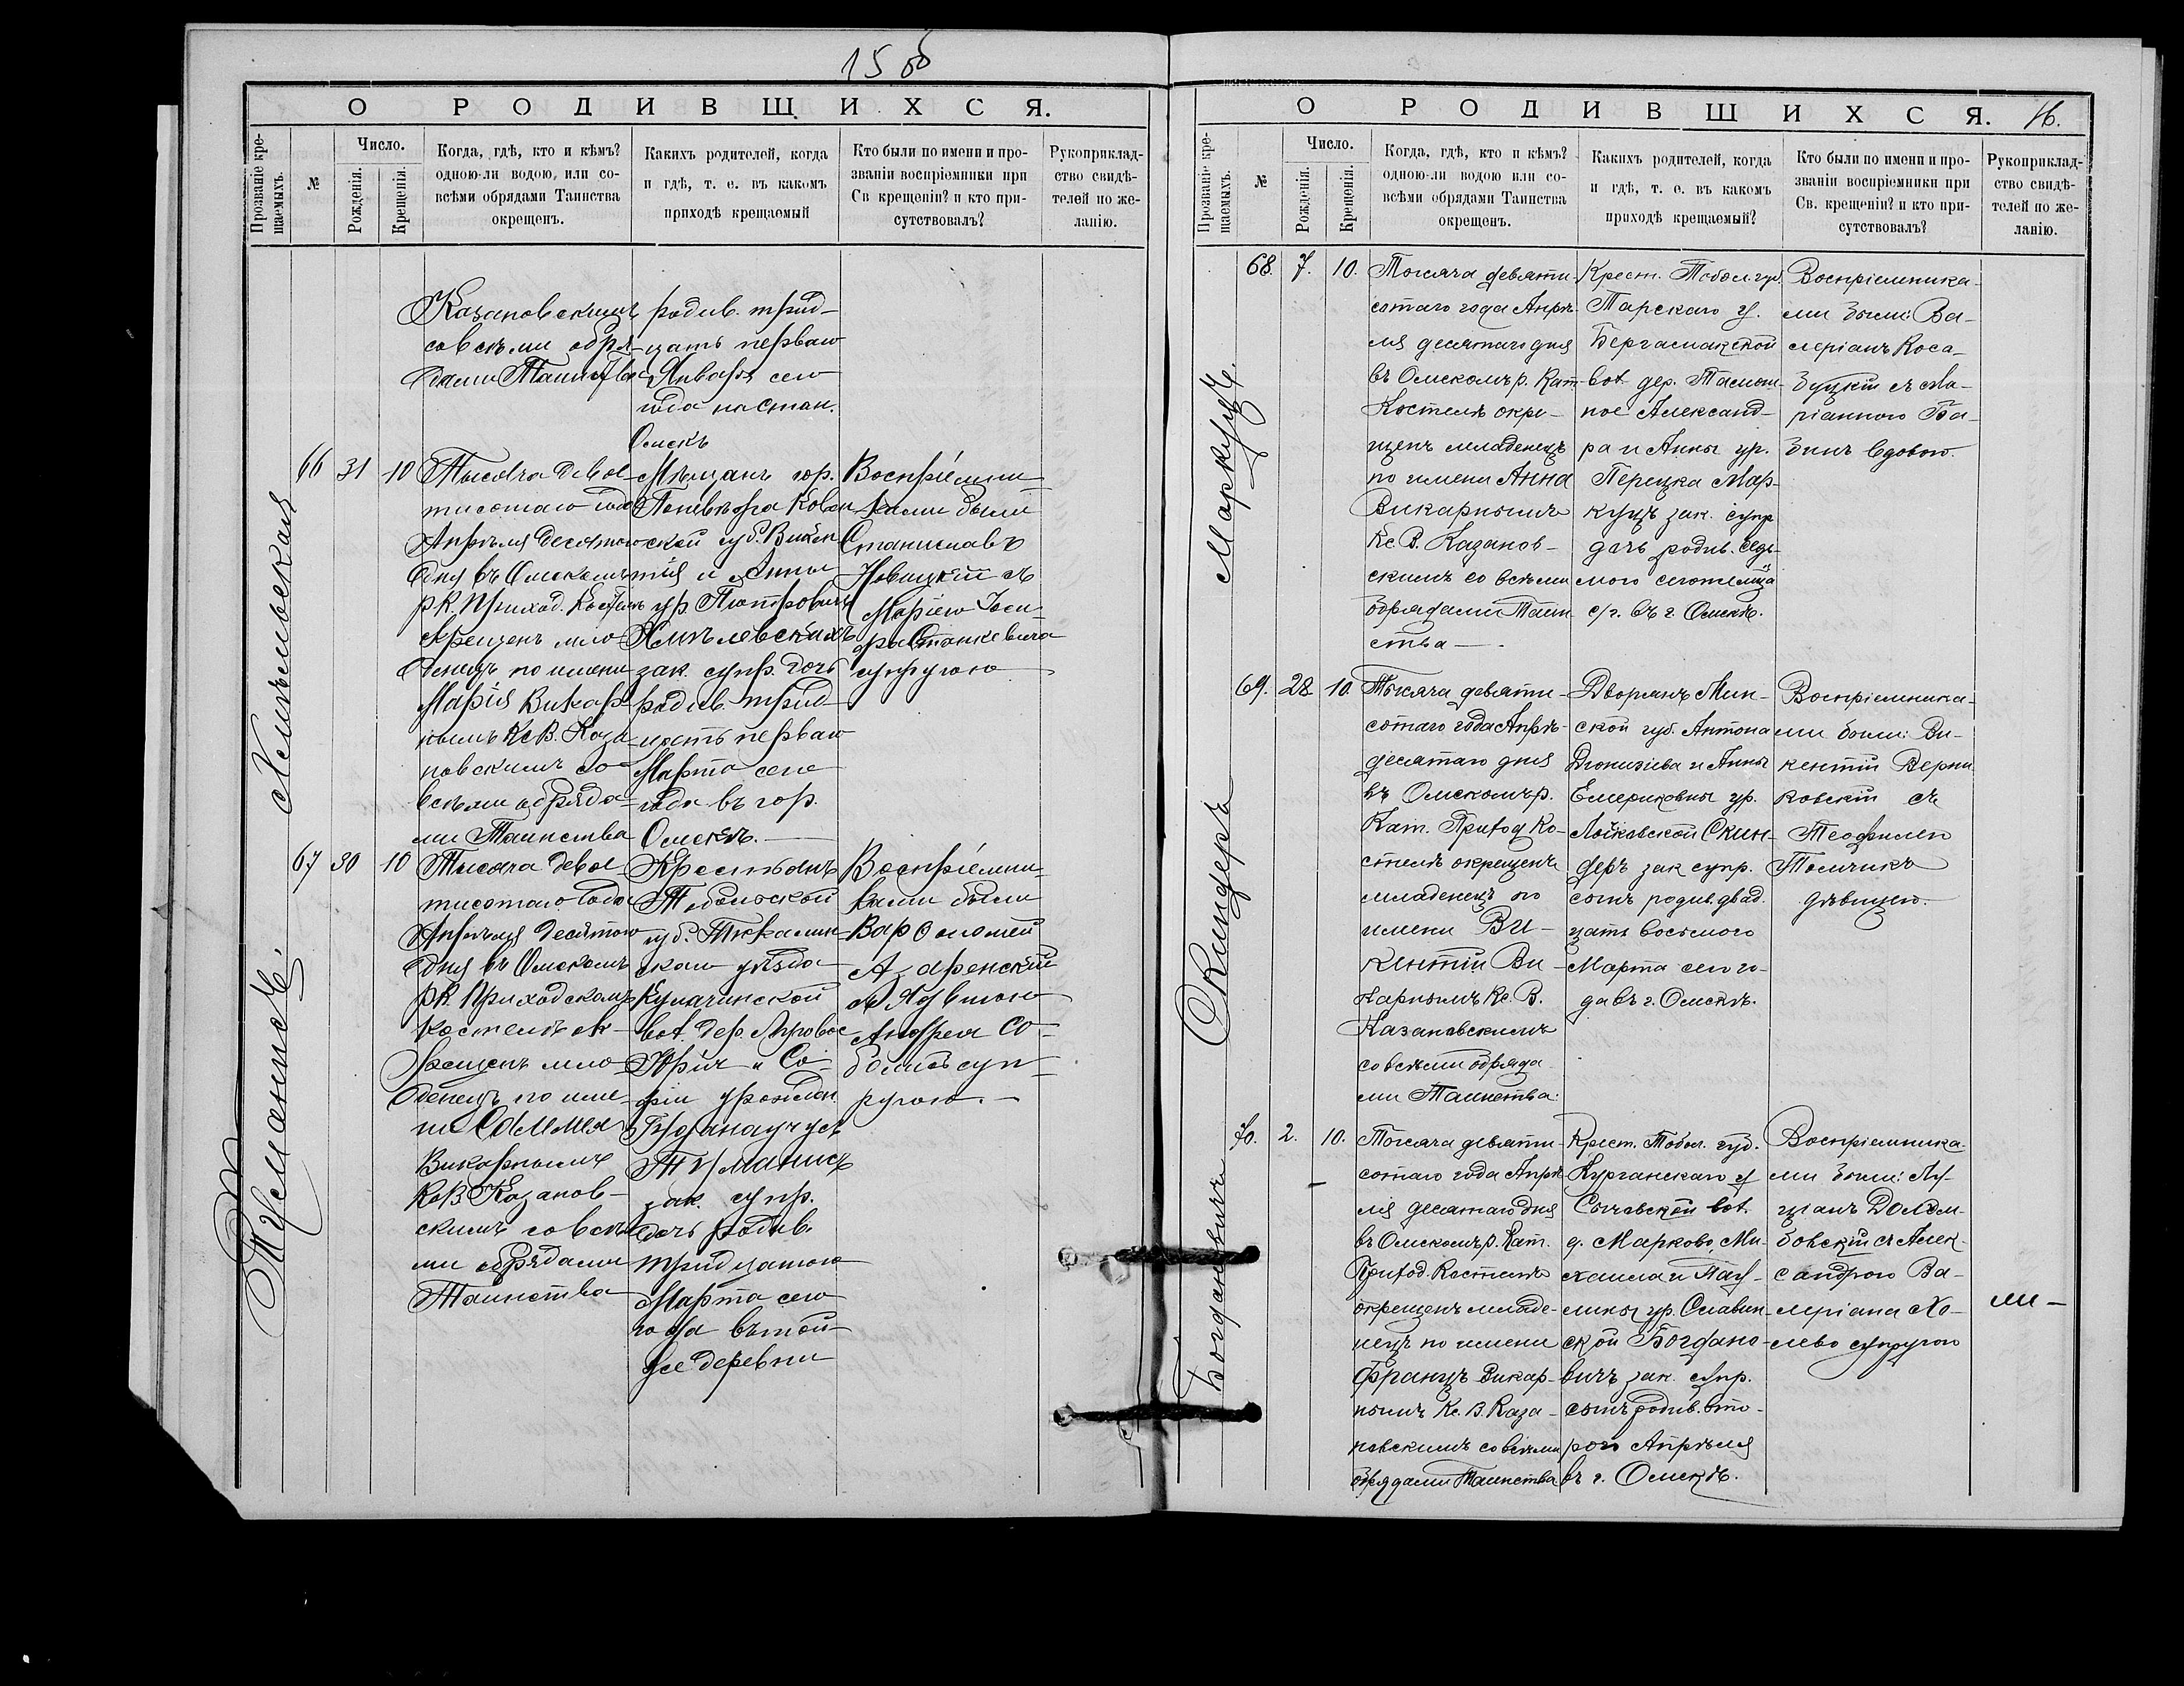 15 об
О РОДИВШИХСЯ.
Прозваніе кре-
щаемыхъ.
№
Число.
Рожденія.
Крещенія.
Когда, гдѣ, кто и кѣмъ?
одною-ли водою, или со-
всѣми обрядами Таинства
окрещенъ.
Какихъ родителей, когда
и гдѣ, т. е. въ какомъ
приходѣ крещаемый
Кто были по имени и про-
званіи воспріемники при
Св крещеніи? и кто при-
сутствовалъ?
Рукоприклад-
ство свидѣ-
телей по же-
ланію.
Казановскимъ
совсѣми обря-
дами Таинства
родив. трид-
цать перваго
Января сего
года на стан.
Омскъ
66 31 10
Тысяча девя-
тисотаго года
Апрѣля десятаго
дня въ Омскомъ
рк. приход. Костелѣ
крещенъ мла-
денецъ по имени
Марія Викар-
нымъ Кс В. Каза-
новскимъ со
всѣми обряда-
ми Таинства
Мѣщанъ гор.
Поневѣжа Ковен
ской губ. Викен
тія и Анны
ур Піотровичъ
Хмѣлевскихъ
зак. супр. дочь
родив. трид-
цать перваго
Марта сего
года въ гор.
Омскѣ.
Воспріемни-
ками были
Станиславъ
Новицкій съ
Маріею Іоси-
фа Станкевича
супругою
67 30 10
Тысяча девя-
тисотаго года
Апрѣля десятаго
дня въ Омскомъ
рк. приходскомъ
костелѣ ок-
рещенъ мла-
денецъ по име-
ни
Викарнымъ
Кс В Казанов-
скимъ со всѣ-
ми обрядами
Таинства
Крестьянъ
Тобольской
губ. Тюкалин
скаго уѣзда
Кулачинской
вол. дер.
Юрія и Со-
фіи урожден
зак. супр.
дочь родив.
тридцатаго
Марта сего
года въ той-
же деревни
Воспріемни-
ками были
съ Ядвигою
Андрея Со-
боль суп-
ругою.
О РОДИВШИХСЯ. 16.
Прозваніе кре-
щаемыхъ.
№
Число.
Рожденія.
Крещенія.
Когда, гдѣ, кто и кѣмъ?
одною-ли водою или со-
всѣми обрядами Таинства
окрещенъ.
Какихъ родителей, когда
и гдѣ, т. е. въ какомъ
приходѣ крещаемый?
Кто были по имени и про-
званіи воспріемники при
Св. крещеніи? и кто при-
сутствовалъ?
Рукоприклад-
ство свидѣ-
телей по же-
ланію.
Маркуцъ.
68. 7. 10.
Тысяча девяти-
сотаго года Апрѣ-
ля десятаго дня
въ Омскомъ р. Кат.
Костелѣ окре-
щенъ младенецъ
по имени Анна
Викарнымъ
Кс. В. Казанов-
скимъ со всѣми
обрядами Таин
ства
Крест. Тобол. губ.
Тарскаго у.
Бергамакской
вол. дер.
Александ-
ра и Анны ур.
Перецка Мар-
куцъ зак. супр
дочь родив. седь-
мого сего м-ца
с/г. въ г. Омскѣ.
Воспріемника-
ми были: Ва-
леріанъ Коса-
буцкій съ Ма-
ріанною Ба-
бинъ вдовою.
Скиндеръ
69. 28. 10.
Тысяча девяти-
сотаго года Апрѣ-
десятаго дня
въ Омскомъ р.
Кат. Приход Ко-
стелѣ окрещенъ
младенецъ по
имени Ви-
кентій Ви-
карнымъ Кс. В.
Казановскимъ
совсѣми обряда
ми Таинства:
Дворянъ Мин-
ской губ. Антона
Діонизіева и Анны
Емериковны ур.
Скин-
деръ зак супр.
сынъ родив. двад.
цать восьмого
Марта сего го-
да въ г. Омскѣ.
Воспріемника-
ми были: Ви-
кентій Верни
ковскій съ
Теофилею
Томчикъ
дѣвицею.
Богдановичъ
70. 2. 10.
Тысяча девяти-
сотаго года Апрѣ
ля десятаго дня
въ Омскомъ р. Кат.
Приход. Костелѣ
окрещенъ младе-
нецъ по имени
Францъ Викар-
нымъ Кс. В. Каза-
новскимъ со всѣми
обрядами Таинства.
Крест. Тобол. губ.
Курганскаго у
Сычевской вол.
д. Марково, Ми-
хаила и Паu-
лины ур. Славин-
ской Богдано-
вичъ зак. супр.
сынъ родив. вто-
рого Апрѣля
въ г. Омскѣ.
Воспріемника-
ми были: Лу-
ціанъ Долом-
бовскій съ Алек-
сандрою Ва-
леріана Хо-
лево супругою